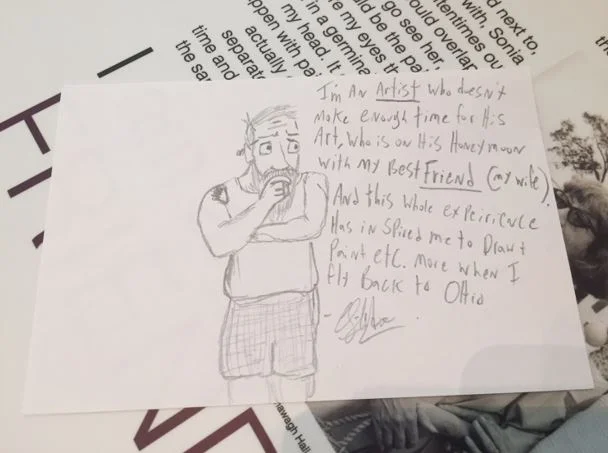 I'm An Artist who doesn't
make enough time for His
Art, who is on His Honeymoon
with my Best Friend (my wife).
And this whole expeirience
Has inspired me to Draw +
Paint etc. more when I
fly Back to Ohio
nd next to.
with. Sonia
tentimes ou
ould overlap
go see her.
uld be the pa
re my eyes th
in a germina
my head. It
ppen with pa
actually
separate
time and
the sa
nawagh Hall